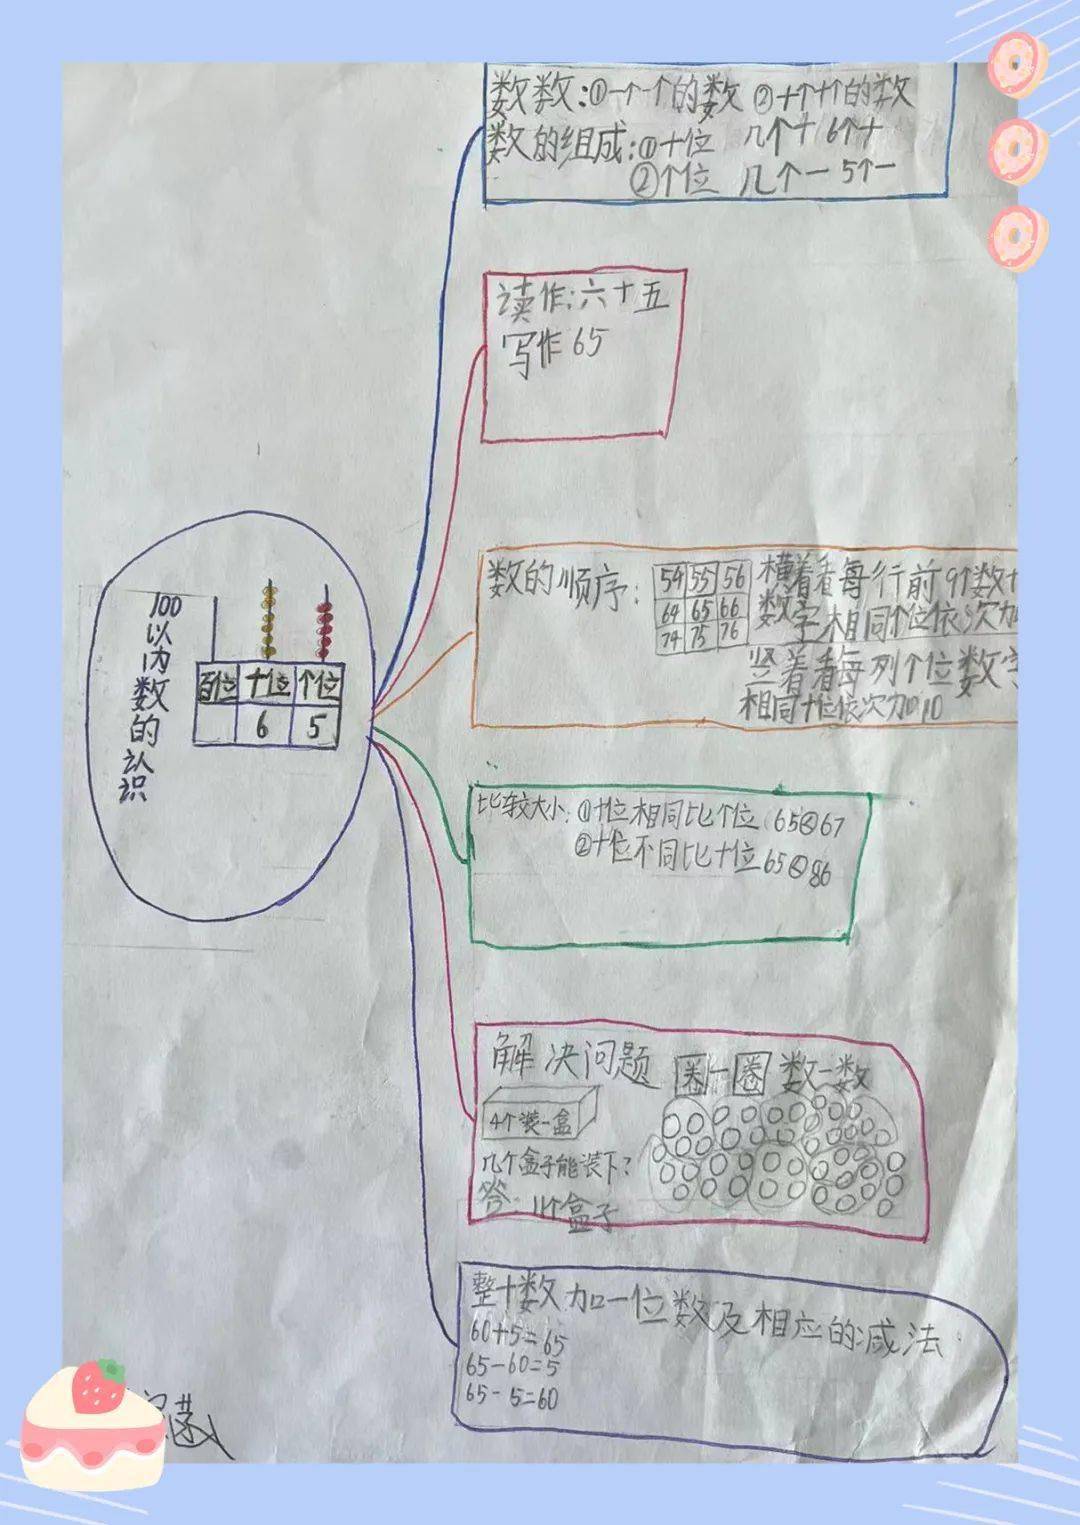 数数:①一个一个的数 ②十个十个的数
数的组成:①十位 几个十 6个十
②个位 几个一 5个一
读作:六十五
写作65
数的顺序:
54 55 56
64 65 66
74 75 76
横着看每行前9个数十
数字相同个位依次加
竖着看每列个位数字
相同十位依次加10
100以内数的认识
百位 十位 个位
6 5
比较大小:①十位相同比个位 65<67
②十位不同比十位65<86
解决问题 圈一圈 数一数
4个装一盒
几个盒子能装下?
答: 11个盒子
整十数加一位数及相应的减法
60+5=65
65-60=5
65-5=60